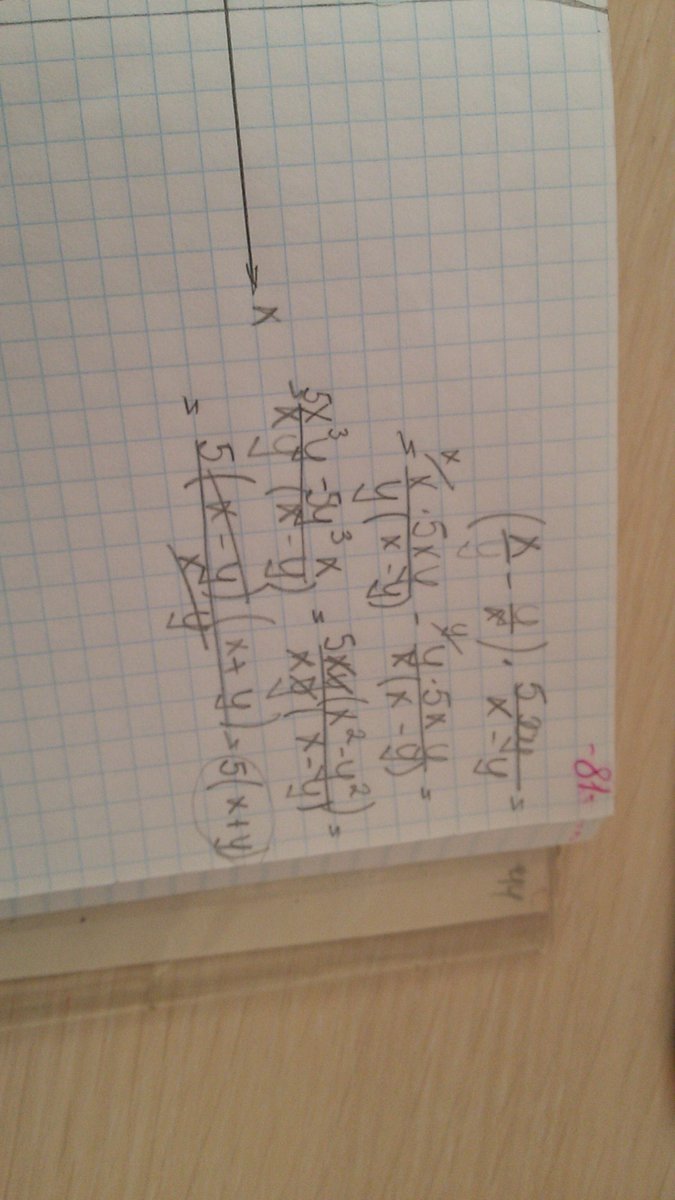 -81
(x/y - y/x) · 5xy/(x-y) =
= x· 5xy/y(x-y) - y·5xy/x(x-y) =
= 5x³y - 5y³x/xy(x-y) = 5xy(x²-y²)/xy(x-y) =
= 5(x-y)(x+y)/x-y = 5(x+y)
x
44